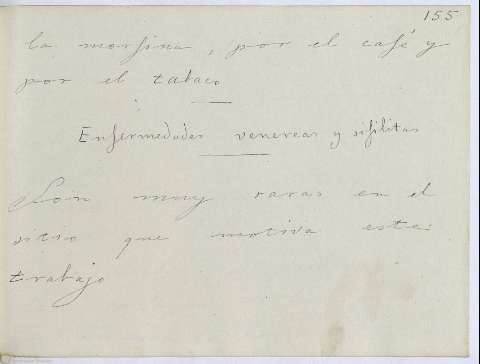 155
la morfina, por el café y
por el tabaco
Enfermedades venereas y sifilitas
Son muy raras en el
sitio que motiva este
trabajo